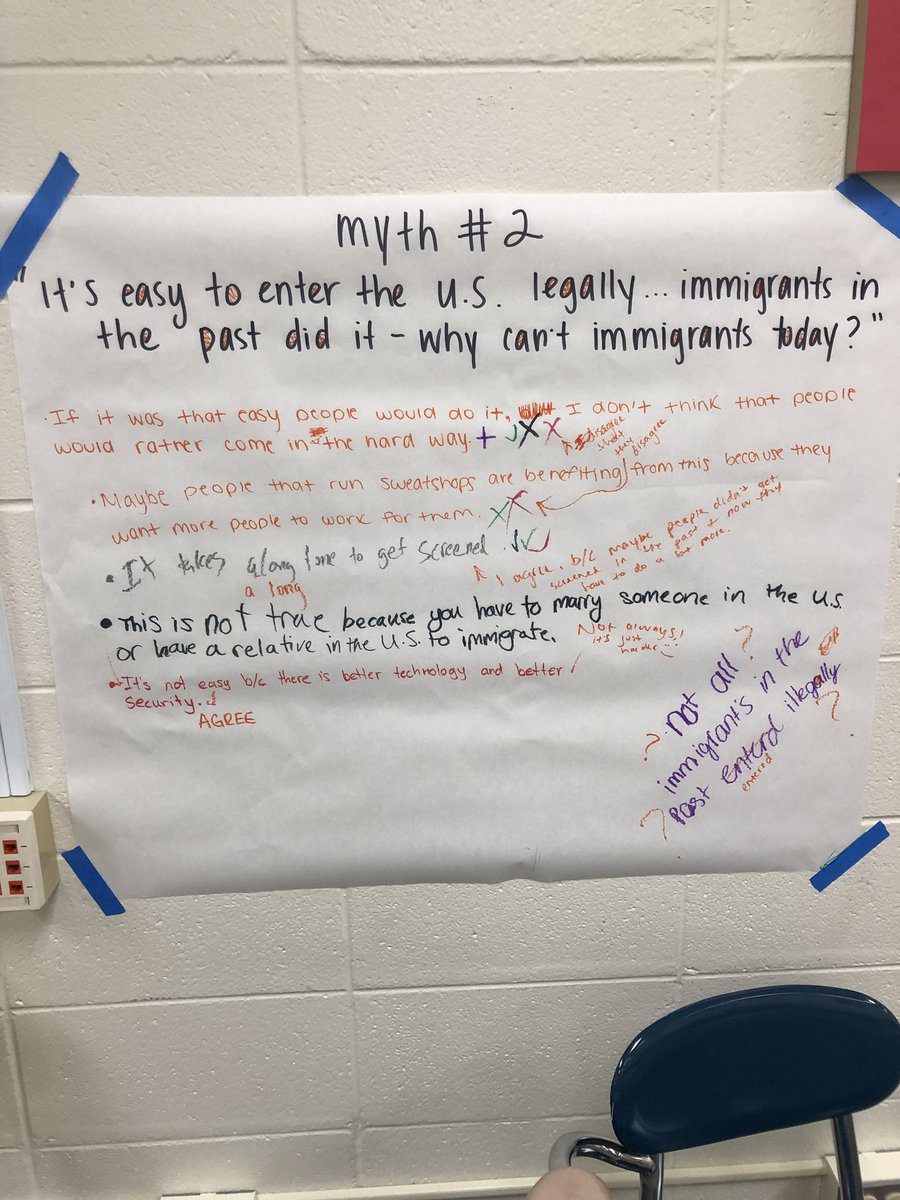 myth #2
"It's easy to enter the U.S. legally... immigrants in
the past did it - why can't immigrants today?"
·If it was that easy people would do it, I don't think that people
would rather come in the hard way. +
disagree
that
they
disagree
•Maybe people that run sweatshops are benefiting from this because they
want more people to work for them.
•It takes along time to get screened.
a long
I agree, b/c maybe people didn't get
screened in the past & now they
have to do a lot more.
•This is not true because you have to marry someone in the U.S.
or have a relative in the U.S. to immigrate.
Not always,
it's just
harder
•It's not easy b/c there is better technology and better
security.
AGREE
? Not all ?
immigrant's in the
? Past enterd illegally ?
entered